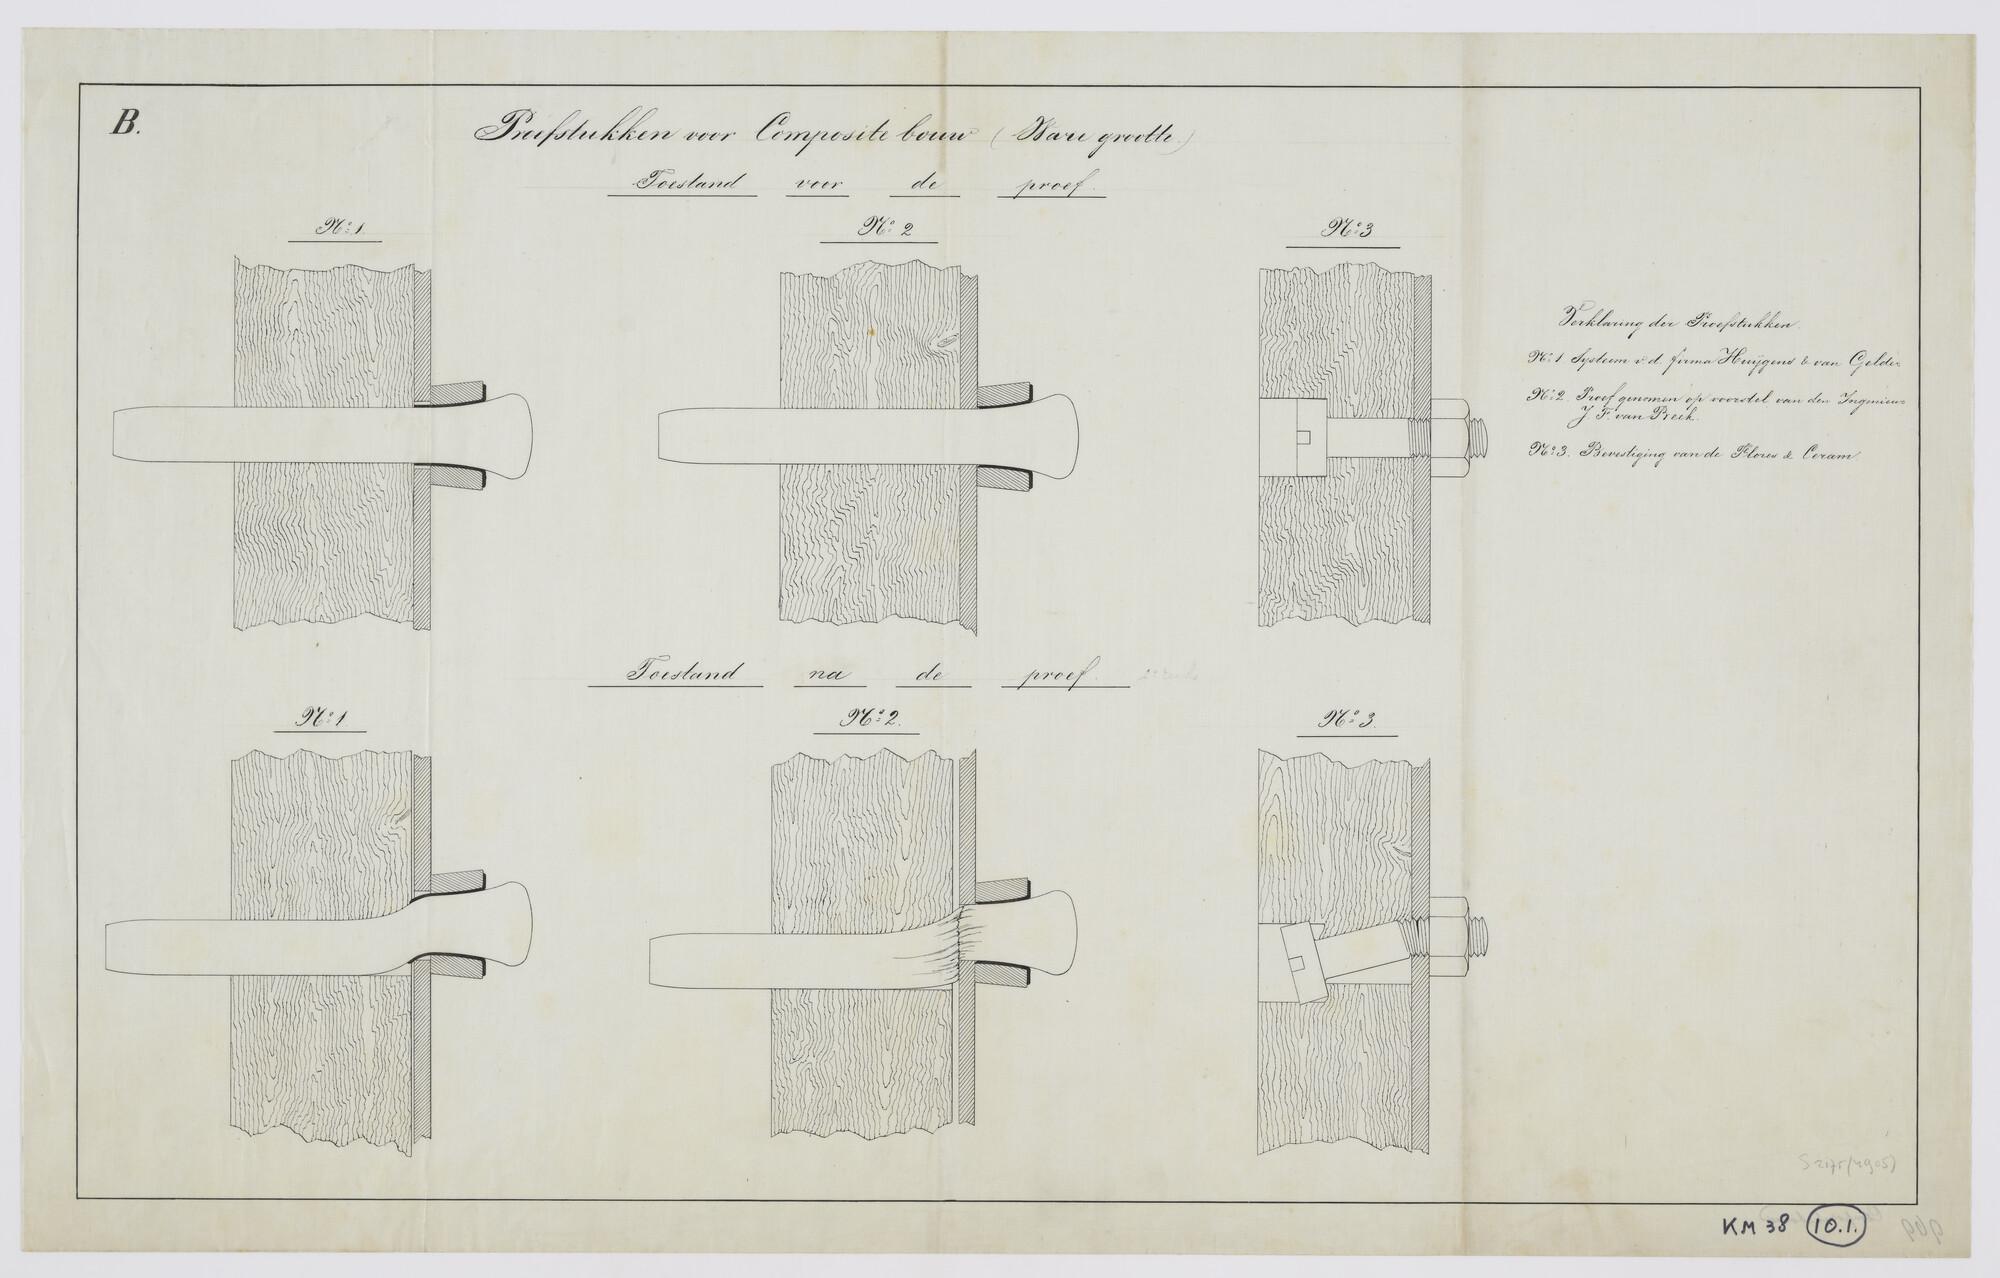 B.
Proefstukken voor Composite bouw (Ware grootte.)
Toestand voor de proef.
No: 1
No: 2
No: 3
Verklaring der Proefstukken.
No: 1 Systeem v.d. firma Huijgens & van Gelder
No: 2. Proef genomen op voorstel van den Ingenieur
J. F. van Beek.
No: 3. Bevestiging van de Flores & Ceram.
Toestand na de proef.
No: 1
No: 2.
No: 3.
KM 38 10.1.